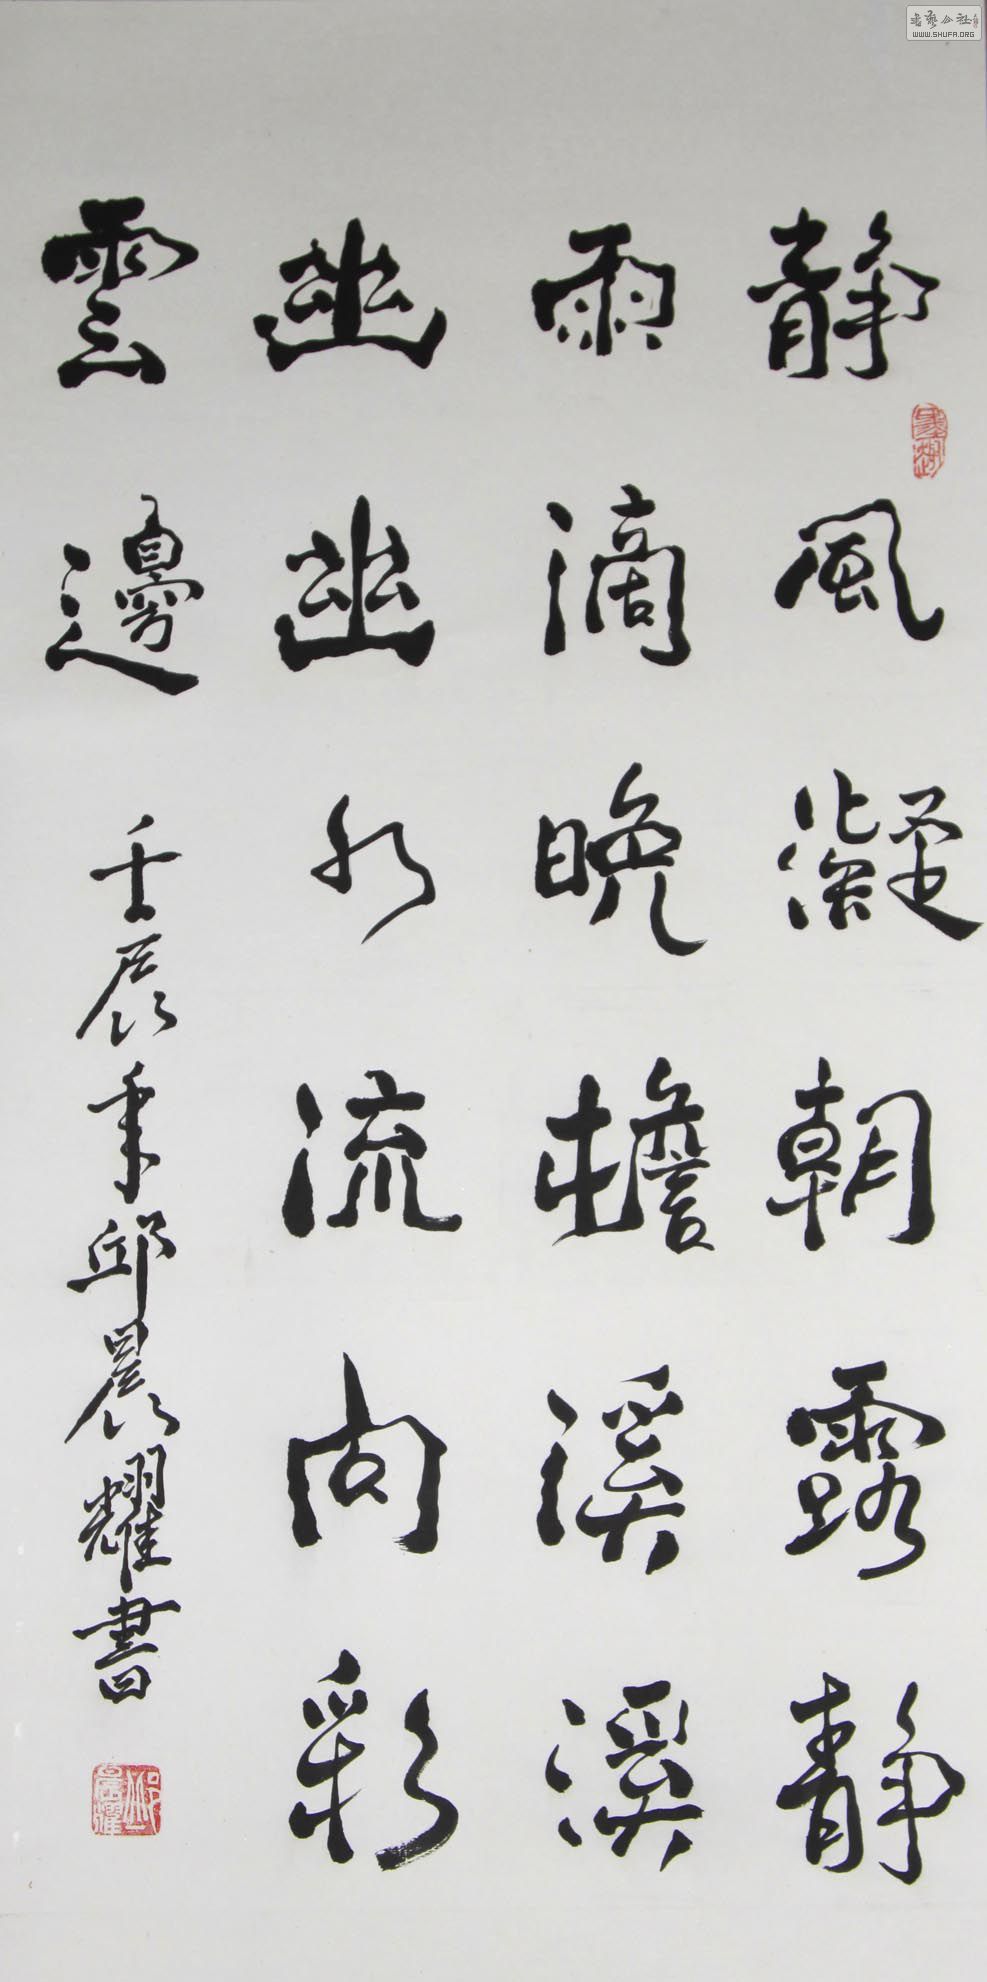 静風凝朝露静
雨滴晚檐溪溪
幽幽水流尚彩
雲邊 壬辰年邱晨耀書
邱晨耀
書藝公社
WWW.SHUFA.ORG